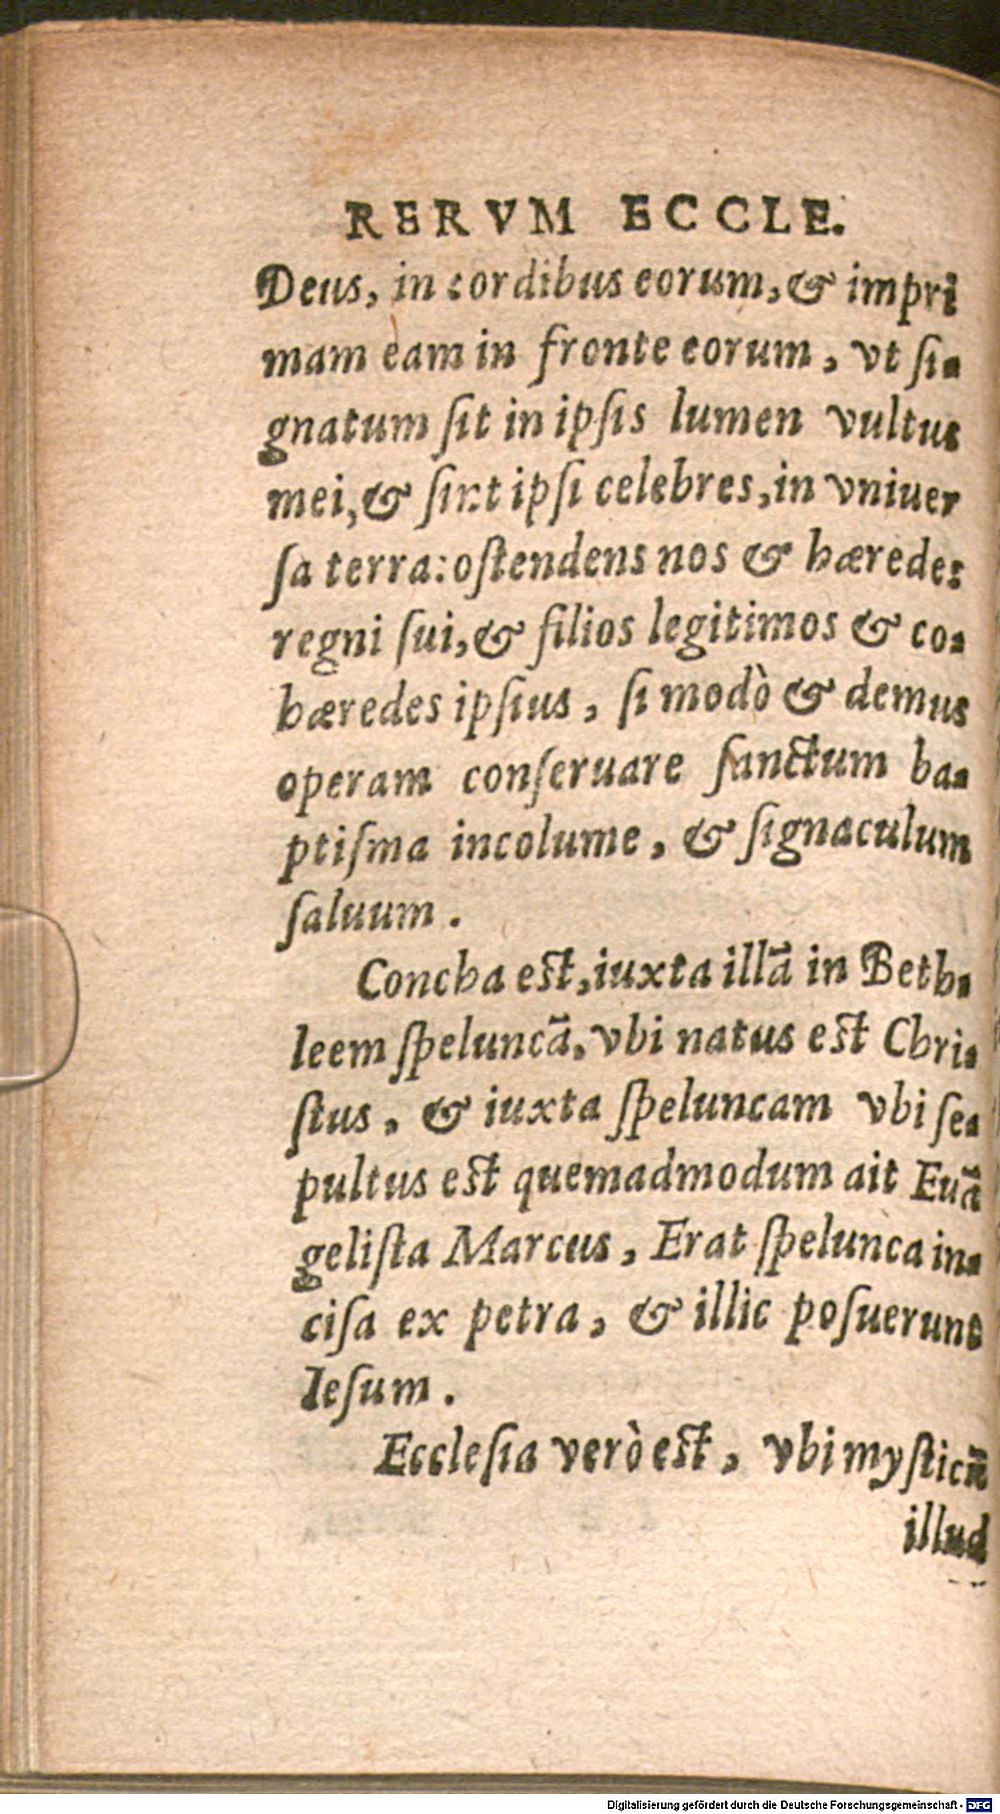 RERVM ECCLE.
Deus, in cordibus eorum, & impri
mam eam in fronte eorum, vt ſi-
gnatum ſit in ipſis lumen vultus
mei, & ſint ipſi celebres, in vniuer
ſa terra: oſtendens nos & hæredes
regni ſui, & filios legitimos & co-
hæredes ipſius, ſi modò & demus
operam conſeruare ſanctum ba-
ptiſma incolume, & ſignaculum
ſaluum.
Concha eſt, iuxta illā in Beth-
leem ſpeluncā, vbi natus eſt Chri-
ſtus, & iuxta ſpeluncam vbi ſe-
pultus eſt quemadmodum ait Euā
geliſta Marcus, Erat ſpelunca in-
ciſa ex petra, & illic poſuerunt
Ieſum.
Eccleſia verò eſt, vbi myſticū
illud
Digitalisierung gefördert durch die Deutsche Forschungsgemeinschaft - DFG